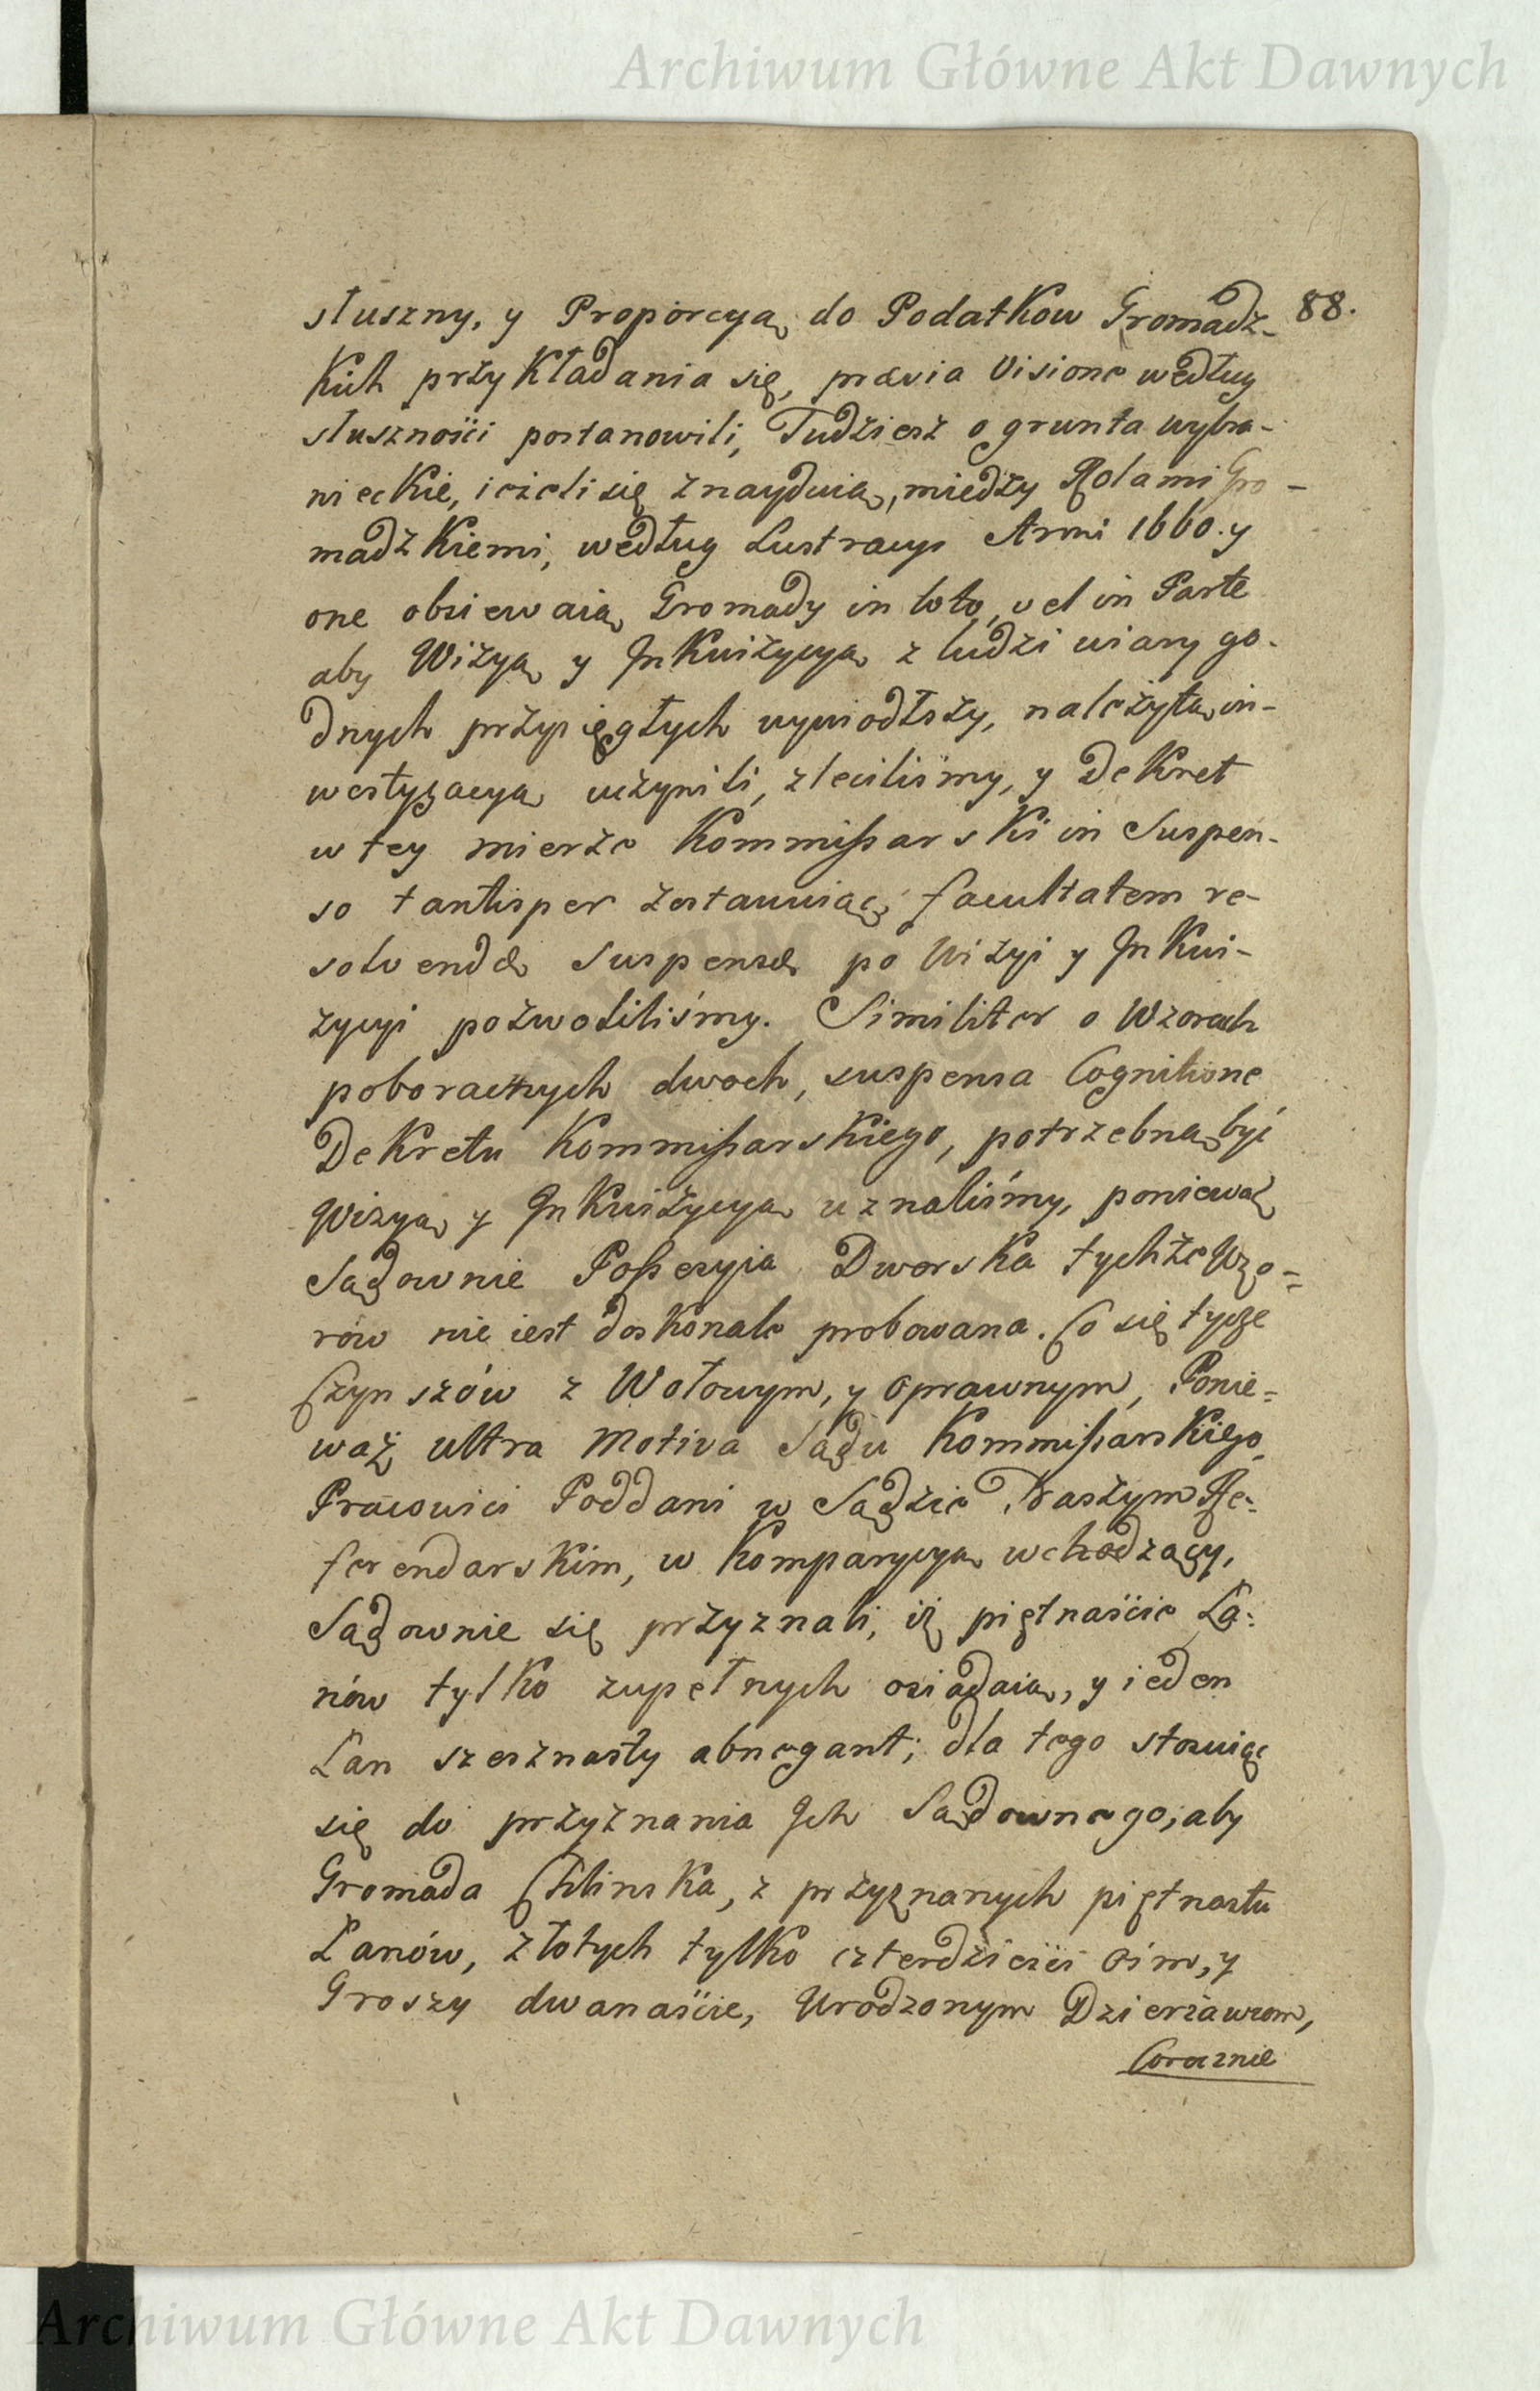 Archiwum Główne Akt Dawnych
słuszny, y Proporcyą do Podatkow Gromadz- 88.
kich przykładania się, prævia Visione według
słuszności postanowili, Tudziesz o grunta wybra-
nieckie, ieżeli się znayduią, między Rolami Gro-
madzkiemi, według Lustracyi Anni 1660. y
one obsiewaią Gromady in toto, vel in Parte
aby Wizyą y Inkwizycyą z ludzi wiary go-
dnych przysięgłych wywiodłszy, należytą in-
westygacyą uczynili, zleciliśmy, y Dekret
w tey mierze Kommissarski in Suspen-
so tantisper zostawuiąc, facultatem re-
solvendæ Suspensæ po Wizyi y Inkwi-
zycyi pozwoliliśmy. Similiter o Wzorach
poboracznych dwoch, suspensa Cognitione
Dekretu Kommissarskiego, potrzebną być
Wizyą y Inkwizycyą uznaliśmy, ponieważ
Sądownie Possesyia Dworska tychże Wzo=
rów nie iest doskonale probowana. Co się tycze
Czynszów z Wołowym, y Oprawnym, Ponie=
waż ultra Motiva Sądu Kommissarskiego,
Pracowici Poddani w Sądzie Naszym Re=
ferendarskim, w Komparycyą wchodzący,
Sądownie się przyznali, iż piętnaście Ła=
nów tylko zupełnych osiadaią, y ieden
Łan szesznasty abnegant; dla tego stosuiąc
się do przyznania Ich Sądownego, aby
Gromada Chlinska, z przyznanych piętnastu
Łanów, złotych tylko czterdzieści ośm, y
Groszy dwanaście, Urodzonym Dzierżawcom,
Corocznie
Archiwum Główne Akt Dawnych